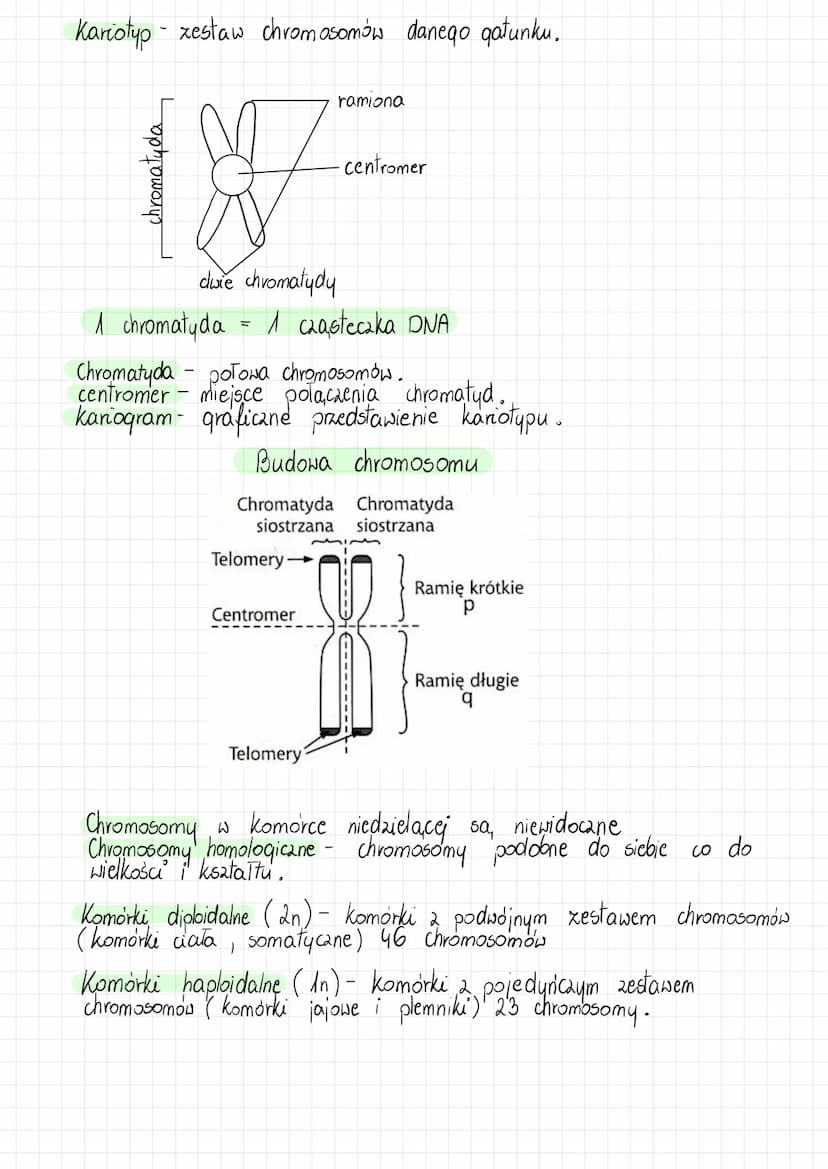 Kariotyp - zestaw chromosomów danego gatunku.
ramiona
chromatyda
centromer
dwie chromatydy
1 chromatyda = 1 cząsteczka DNA
Chromatyda - połowa chromosomów.
centromer - miejsce połączenia chromatyd.
kariogram - graficzne przedstawienie kariotypu.
Budowa chromosomu
Chromatyda siostrzana
Chromatyda siostrzana
Telomery
Ramię krótkie
p
Centromer
Ramię długie
q
Telomery
Chromosomy w komórce niedzielącej są niewidoczne
Chromosomy homologiczne - chromosomy podobne do siebie co do
wielkości i kształtu.
Komórki diploidalne (2n) - komórki z podwójnym zestawem chromosomów
(komórki ciała, somatyczne) 46 chromosomów
Komórki haploidalne (1n) - komórki z pojedyńczym zestawem
chromosomów (komórki jajowe i plemniki) 23 chromosomy.